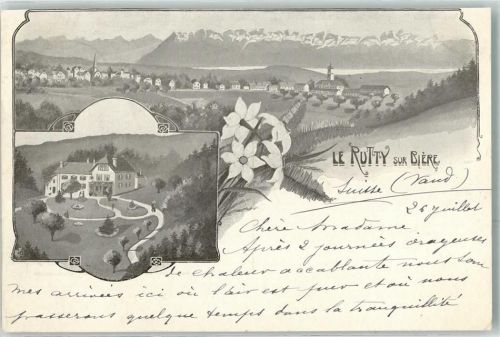 LE RUTTY SUR BIÈRE.
Suisse (Vaud)
26 juillet
Chère Madame
Après 2 journées orageuses
de chaleur accablante nous som
mes arrivées ici où l'air est pur et où nous
passerons quelque temps dans la tranquillité